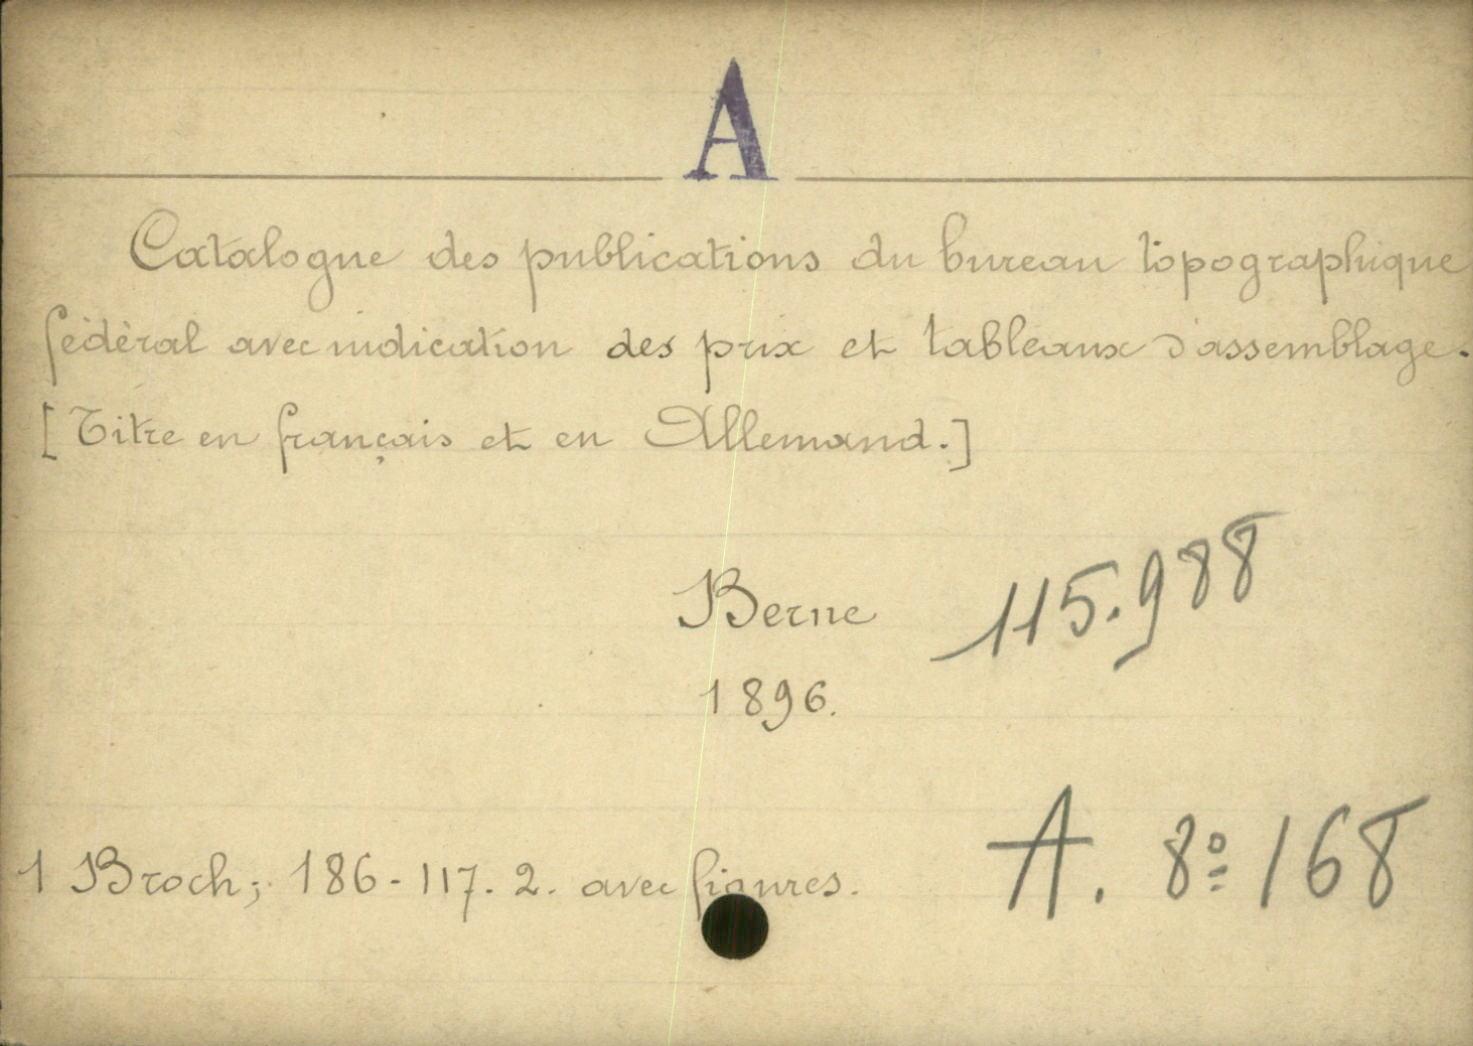 A
Catalogue des publications du bureau topographique
fédéral avec indication des prix et tableaux d'assemblage.
[Titre en français et en Allemand.]
Berne
115.988
1896.
1 Broch; 186-117. 2. avec figures.
A. 8º 168